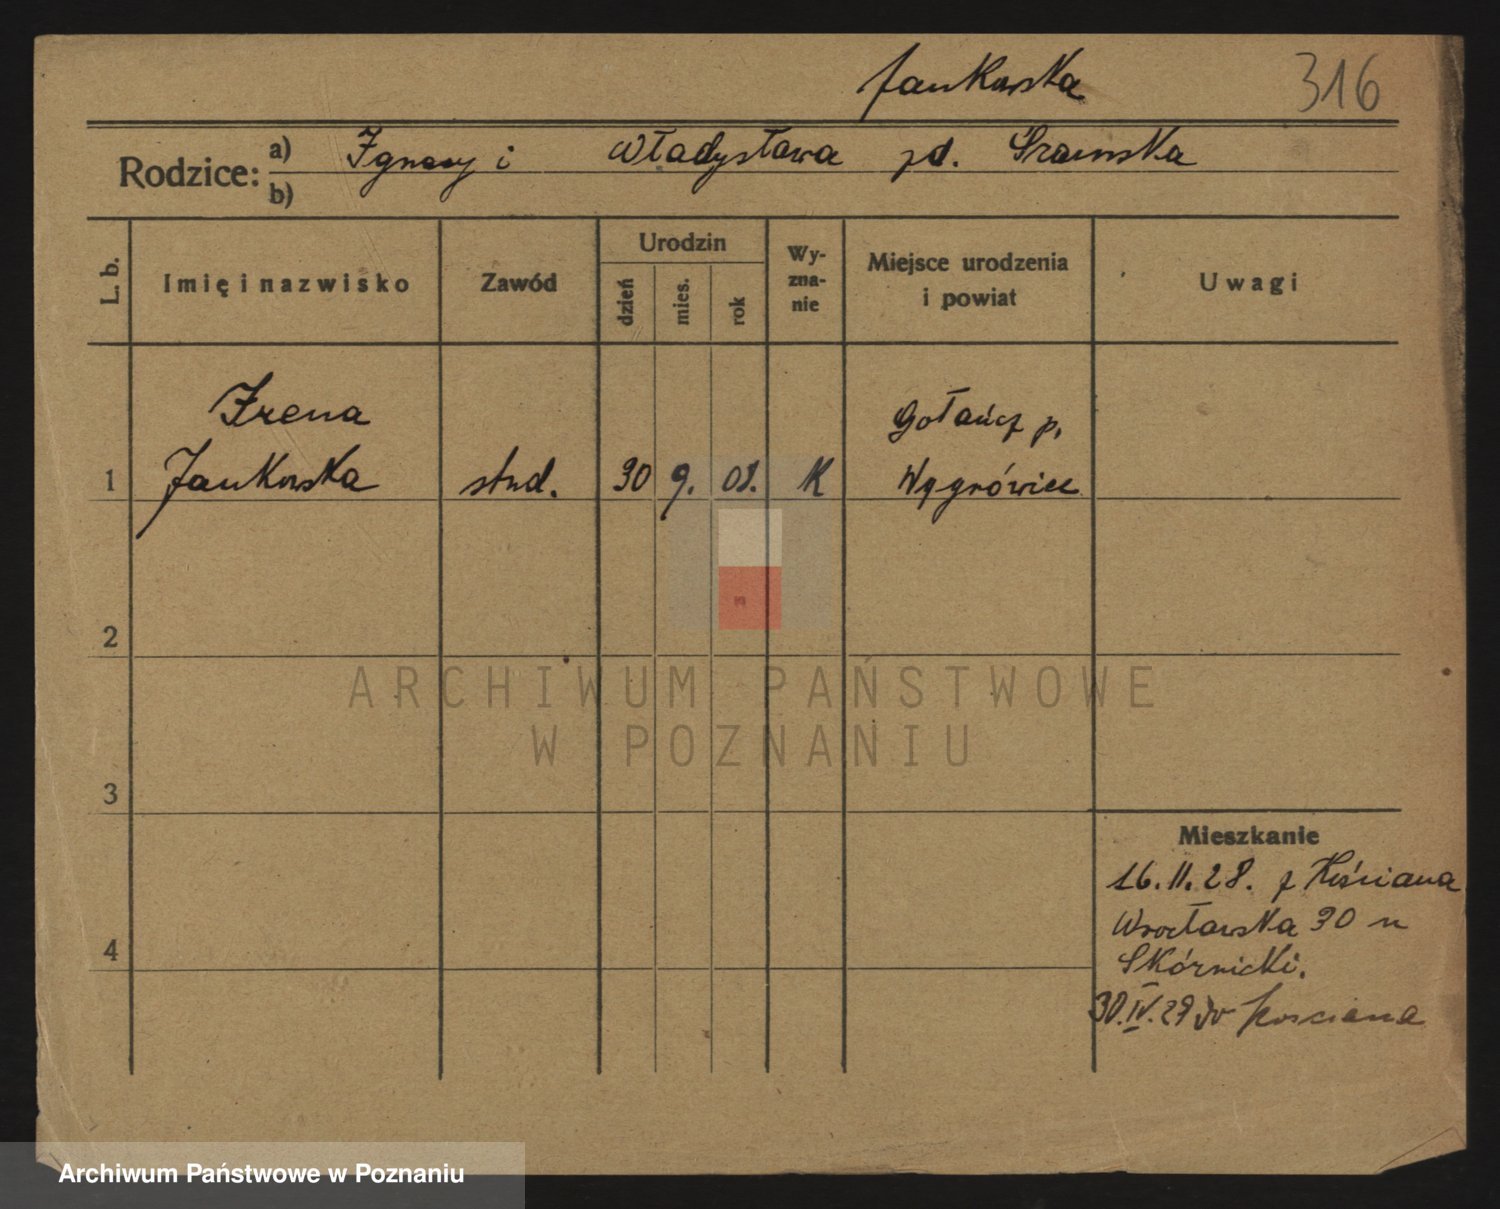 Jankowska
316
Rodzice:
a) Ignacy i Władysława zd. Sramska
b)
L. b.
Imię i nazwisko
Zawód
Urodzin
dzień
mies.
rok
Wy-
zna-
nie
Miejsce urodzenia
i powiat
Uwagi
Irena
Gołańcz p.
1 Jankowska stud. 30 9. 08. K Wągrówiec
2
ARCHIWUM PAŃSTWOWE
W POZNANIU
3
Mieszkanie
16. II. 28. z Kościana
Wrocławska 30 u
4 Skórnicki.
30. IV. 29 do Kościana
Archiwum Państwowe w Poznaniu